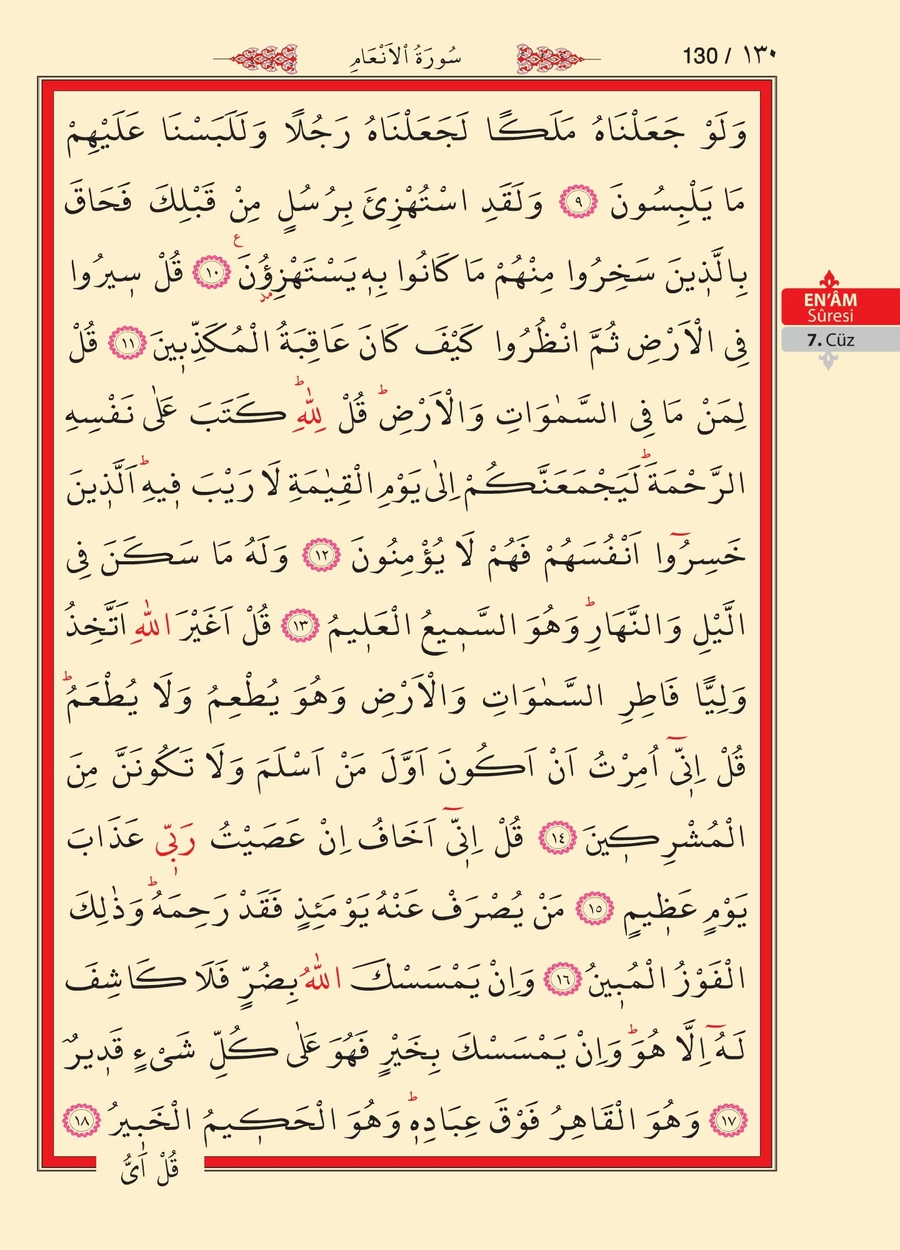 130 / ١٣٠
سُورَةُ الْاَنْعَامِ
وَلَوْ جَعَلْنَاهُ مَلَكًا لَجَعَلْنَاهُ رَجُلًا وَلَلَبَسْنَا عَلَيْهِمْ
مَا يَلْبِسُونَ ﴿٩﴾ وَلَقَدِ اسْتُهْزِئَ بِرُسُلٍ مِنْ قَبْلِكَ فَحَاقَ
بِالَّذ۪ينَ سَخِرُوا مِنْهُمْ مَا كَانُوا بِه۪ يَسْتَهْزِؤُ۫نَ ﴿١٠﴾ قُلْ س۪يرُوا
فِى الْاَرْضِ ثُمَّ انْظُرُوا كَيْفَ كَانَ عَاقِبَةُ الْمُكَذِّب۪ينَ ﴿١١﴾ قُلْ
لِمَنْ مَا فِى السَّمٰوَاتِ وَالْاَرْضِۜ قُلْ لِلّٰهِۜ كَتَبَ عَلٰى نَفْسِهِ
الرَّحْمَةَۜ لَيَجْمَعَنَّكُمْ اِلٰى يَوْمِ الْقِيٰمَةِ لَا رَيْبَ ف۪يهِۜ اَلَّذ۪ينَ
خَسِرُٓوا اَنْفُسَهُمْ فَهُمْ لَا يُؤْمِنُونَ ﴿١٢﴾ وَلَهُ مَا سَكَنَ فِى
الَّيْلِ وَالنَّهَارِۜ وَهُوَ السَّم۪يعُ الْعَل۪يمُ ﴿١٣﴾ قُلْ اَغَيْرَ اللّٰهِ اَتَّخِذُ
وَلِيًّا فَاطِرِ السَّمٰوَاتِ وَالْاَرْضِ وَهُوَ يُطْعِمُ وَلَا يُطْعَمُۜ
قُلْ اِنّ۪ٓى اُمِرْتُ اَنْ اَكُونَ اَوَّلَ مَنْ اَسْلَمَ وَلَا تَكُونَنَّ مِنَ
الْمُشْرِك۪ينَ ﴿١٤﴾ قُلْ اِنّ۪ٓى اَخَافُ اِنْ عَصَيْتُ رَبّ۪ى عَذَابَ
يَوْمٍ عَظ۪يمٍ ﴿١٥﴾ مَنْ يُصْرَفْ عَنْهُ يَوْمَئِذٍ فَقَدْ رَحِمَهُۜ وَذٰلِكَ
الْفَوْزُ الْمُب۪ينُ ﴿١٦﴾ وَاِنْ يَمْسَسْكَ اللّٰهُ بِضُرٍّ فَلَا كَاشِفَ
لَهُٓ اِلَّا هُوَۜ وَاِنْ يَمْسَسْكَ بِخَيْرٍ فَهُوَ عَلٰى كُلِّ شَىْءٍ قَد۪يرٌ
﴿١٧﴾ وَهُوَ الْقَاهِرُ فَوْقَ عِبَادِه۪ۜ وَهُوَ الْحَك۪يمُ الْخَب۪يرُ ﴿١٨﴾
قُلْ اَىُّ
EN'ÂM
Sûresi
7. Cüz